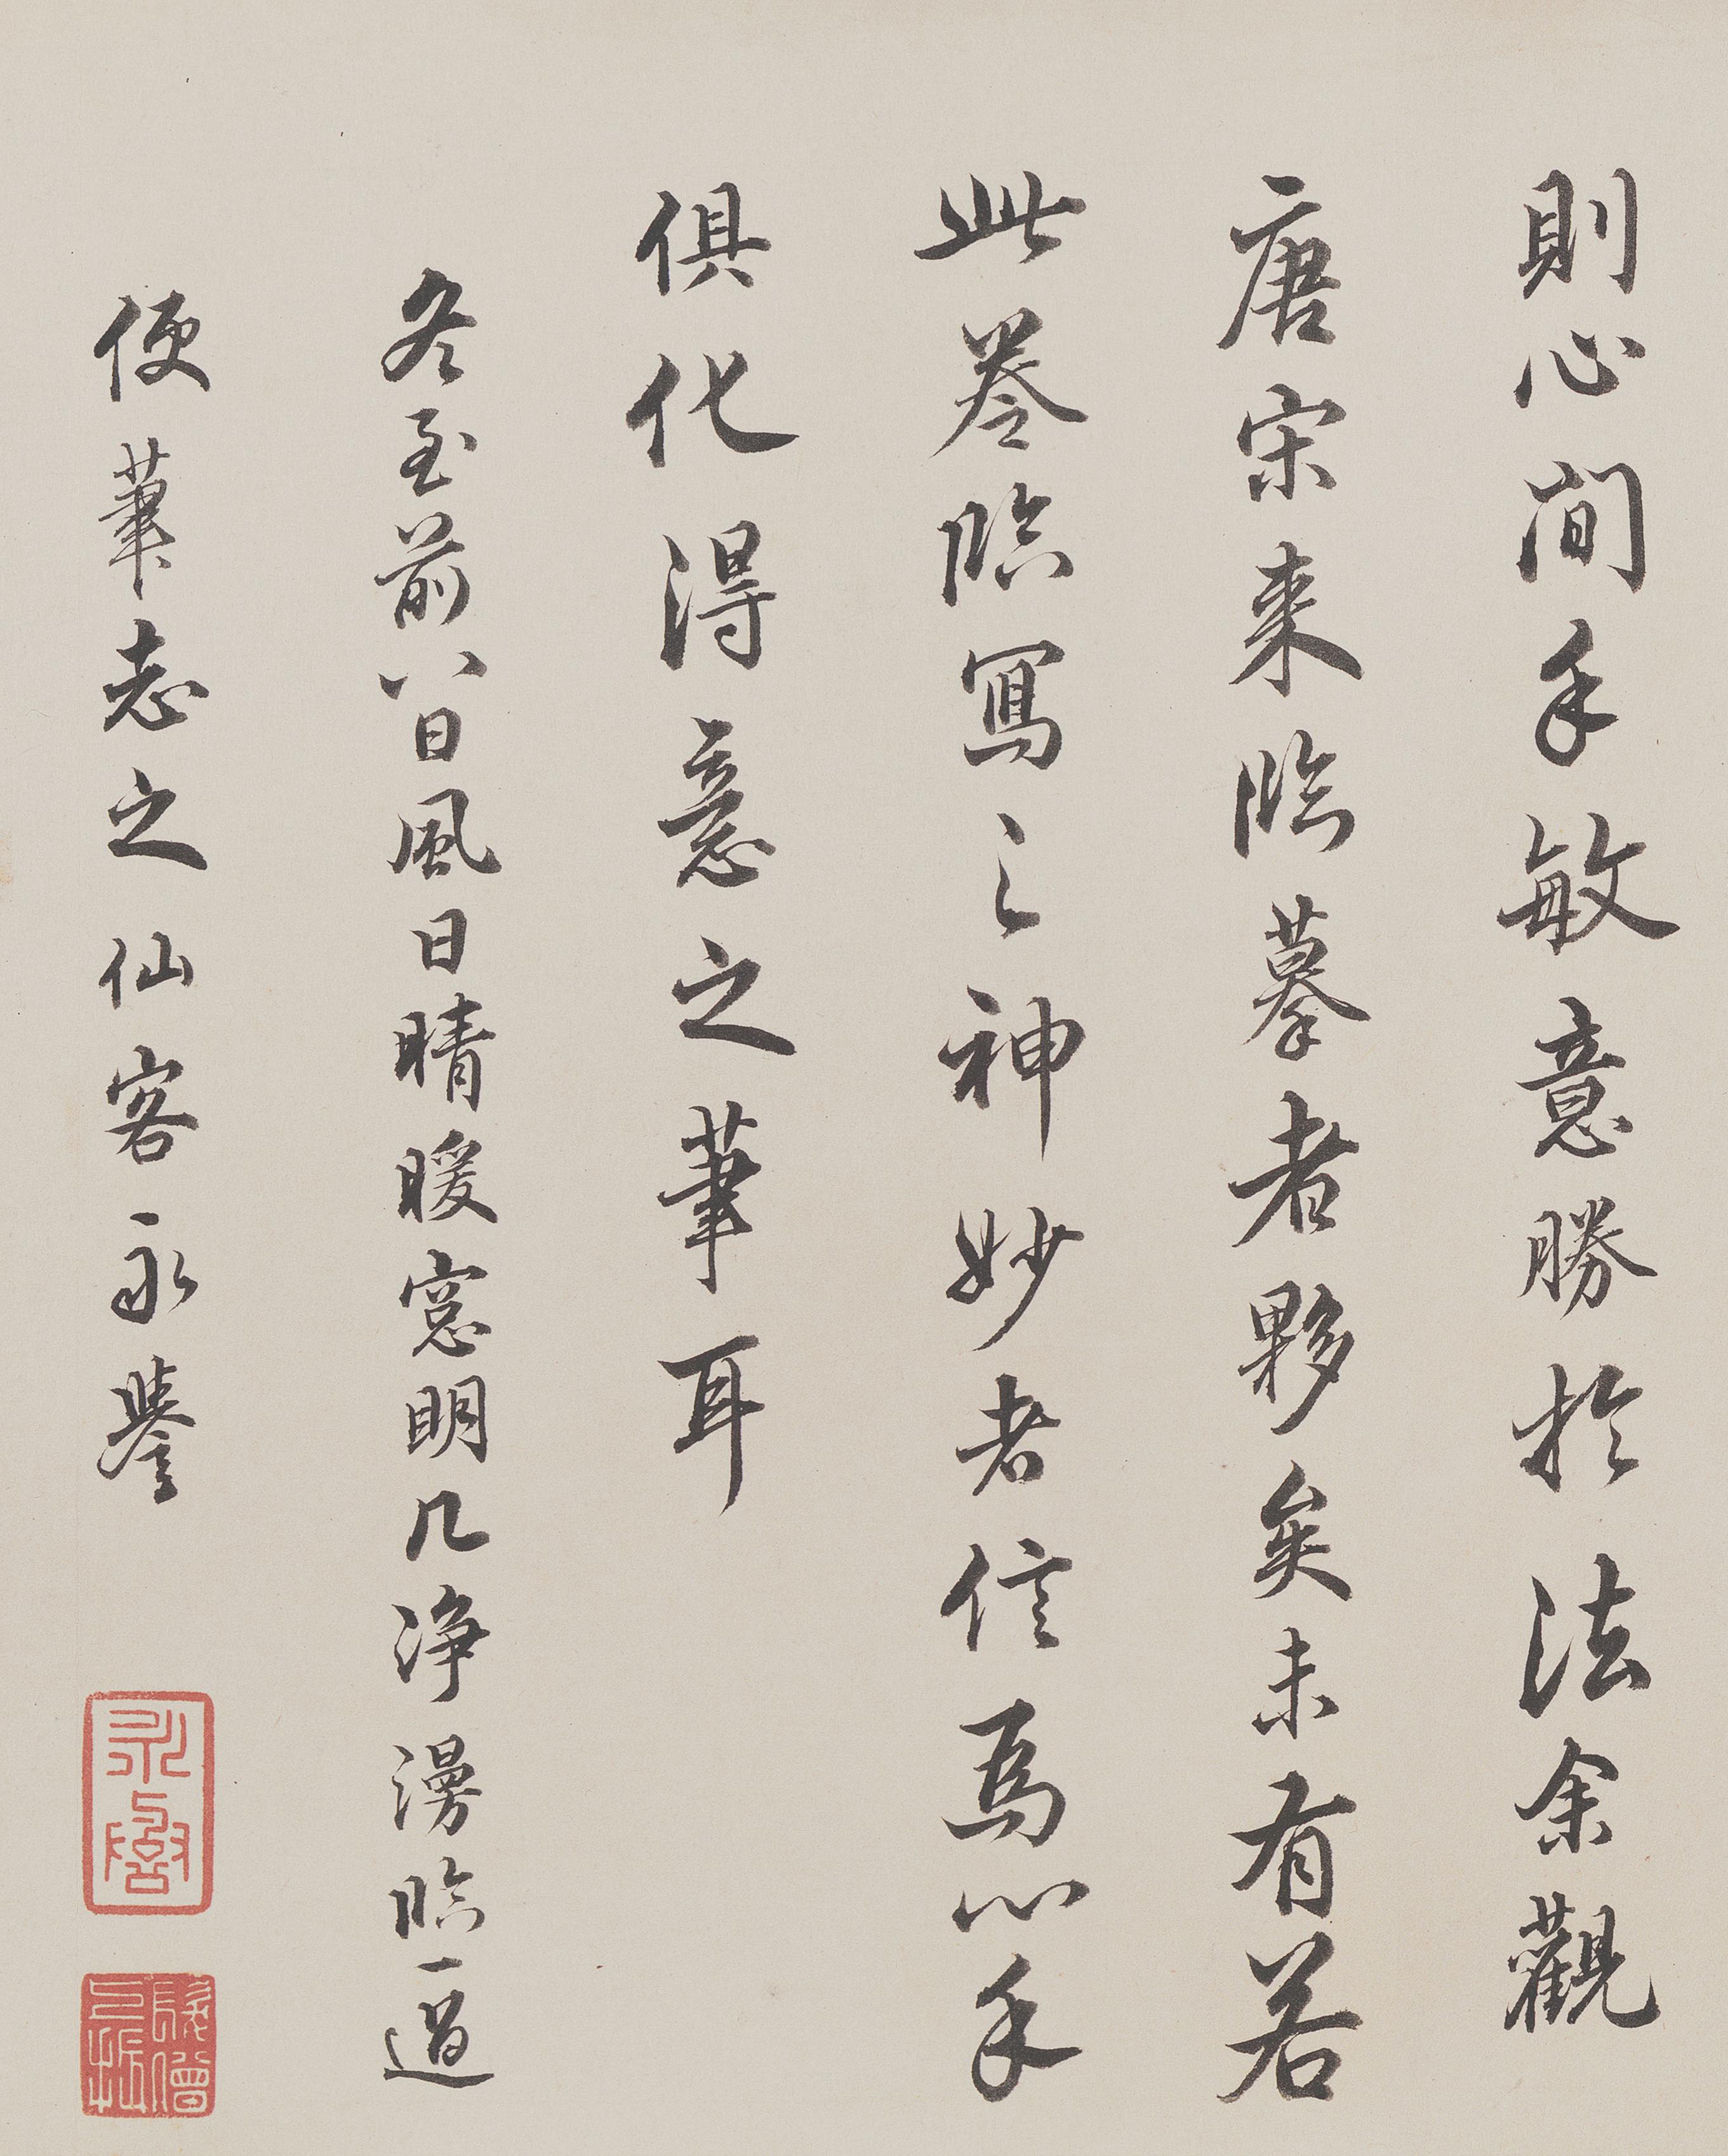 則心閒手敏意勝於法余觀
唐宋來臨摹者夥矣未有若
此卷臨寫之神妙者信爲心手
俱化得意之筆耳
冬至前八日風日晴暖窓明几淨漫臨一過
便筆志之仙客永譽
永譽